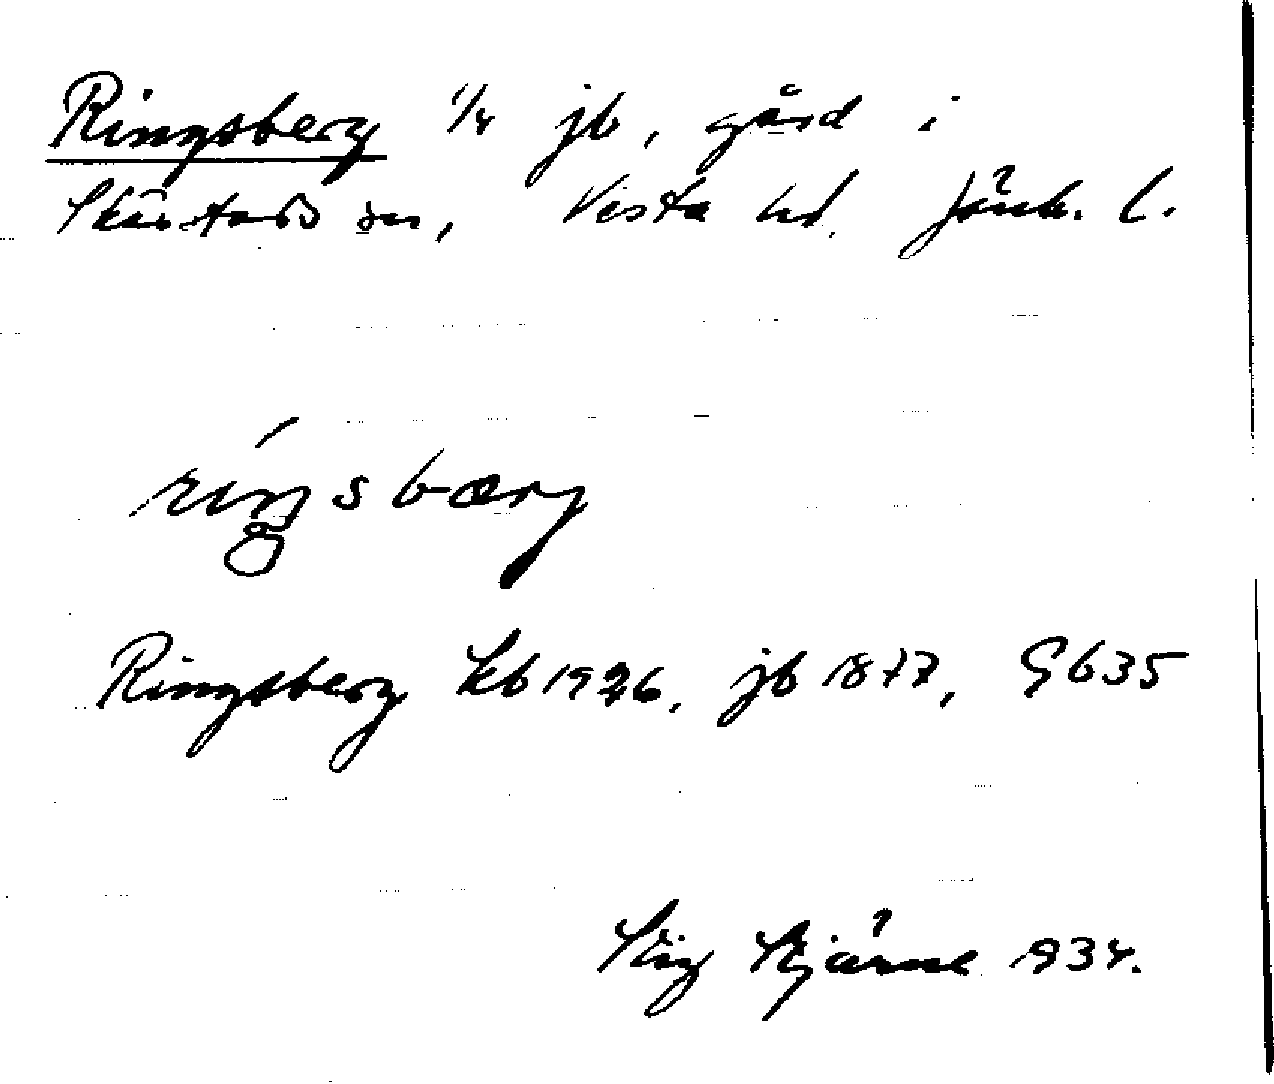 Ringsberg 1/4 jb, gård i
Skärstads sn, Vista hd. Jönk. l.
riŋsbærj
Ringsberg kb 1926, jb 1877, Gb35
Stig Bjärme 1934.